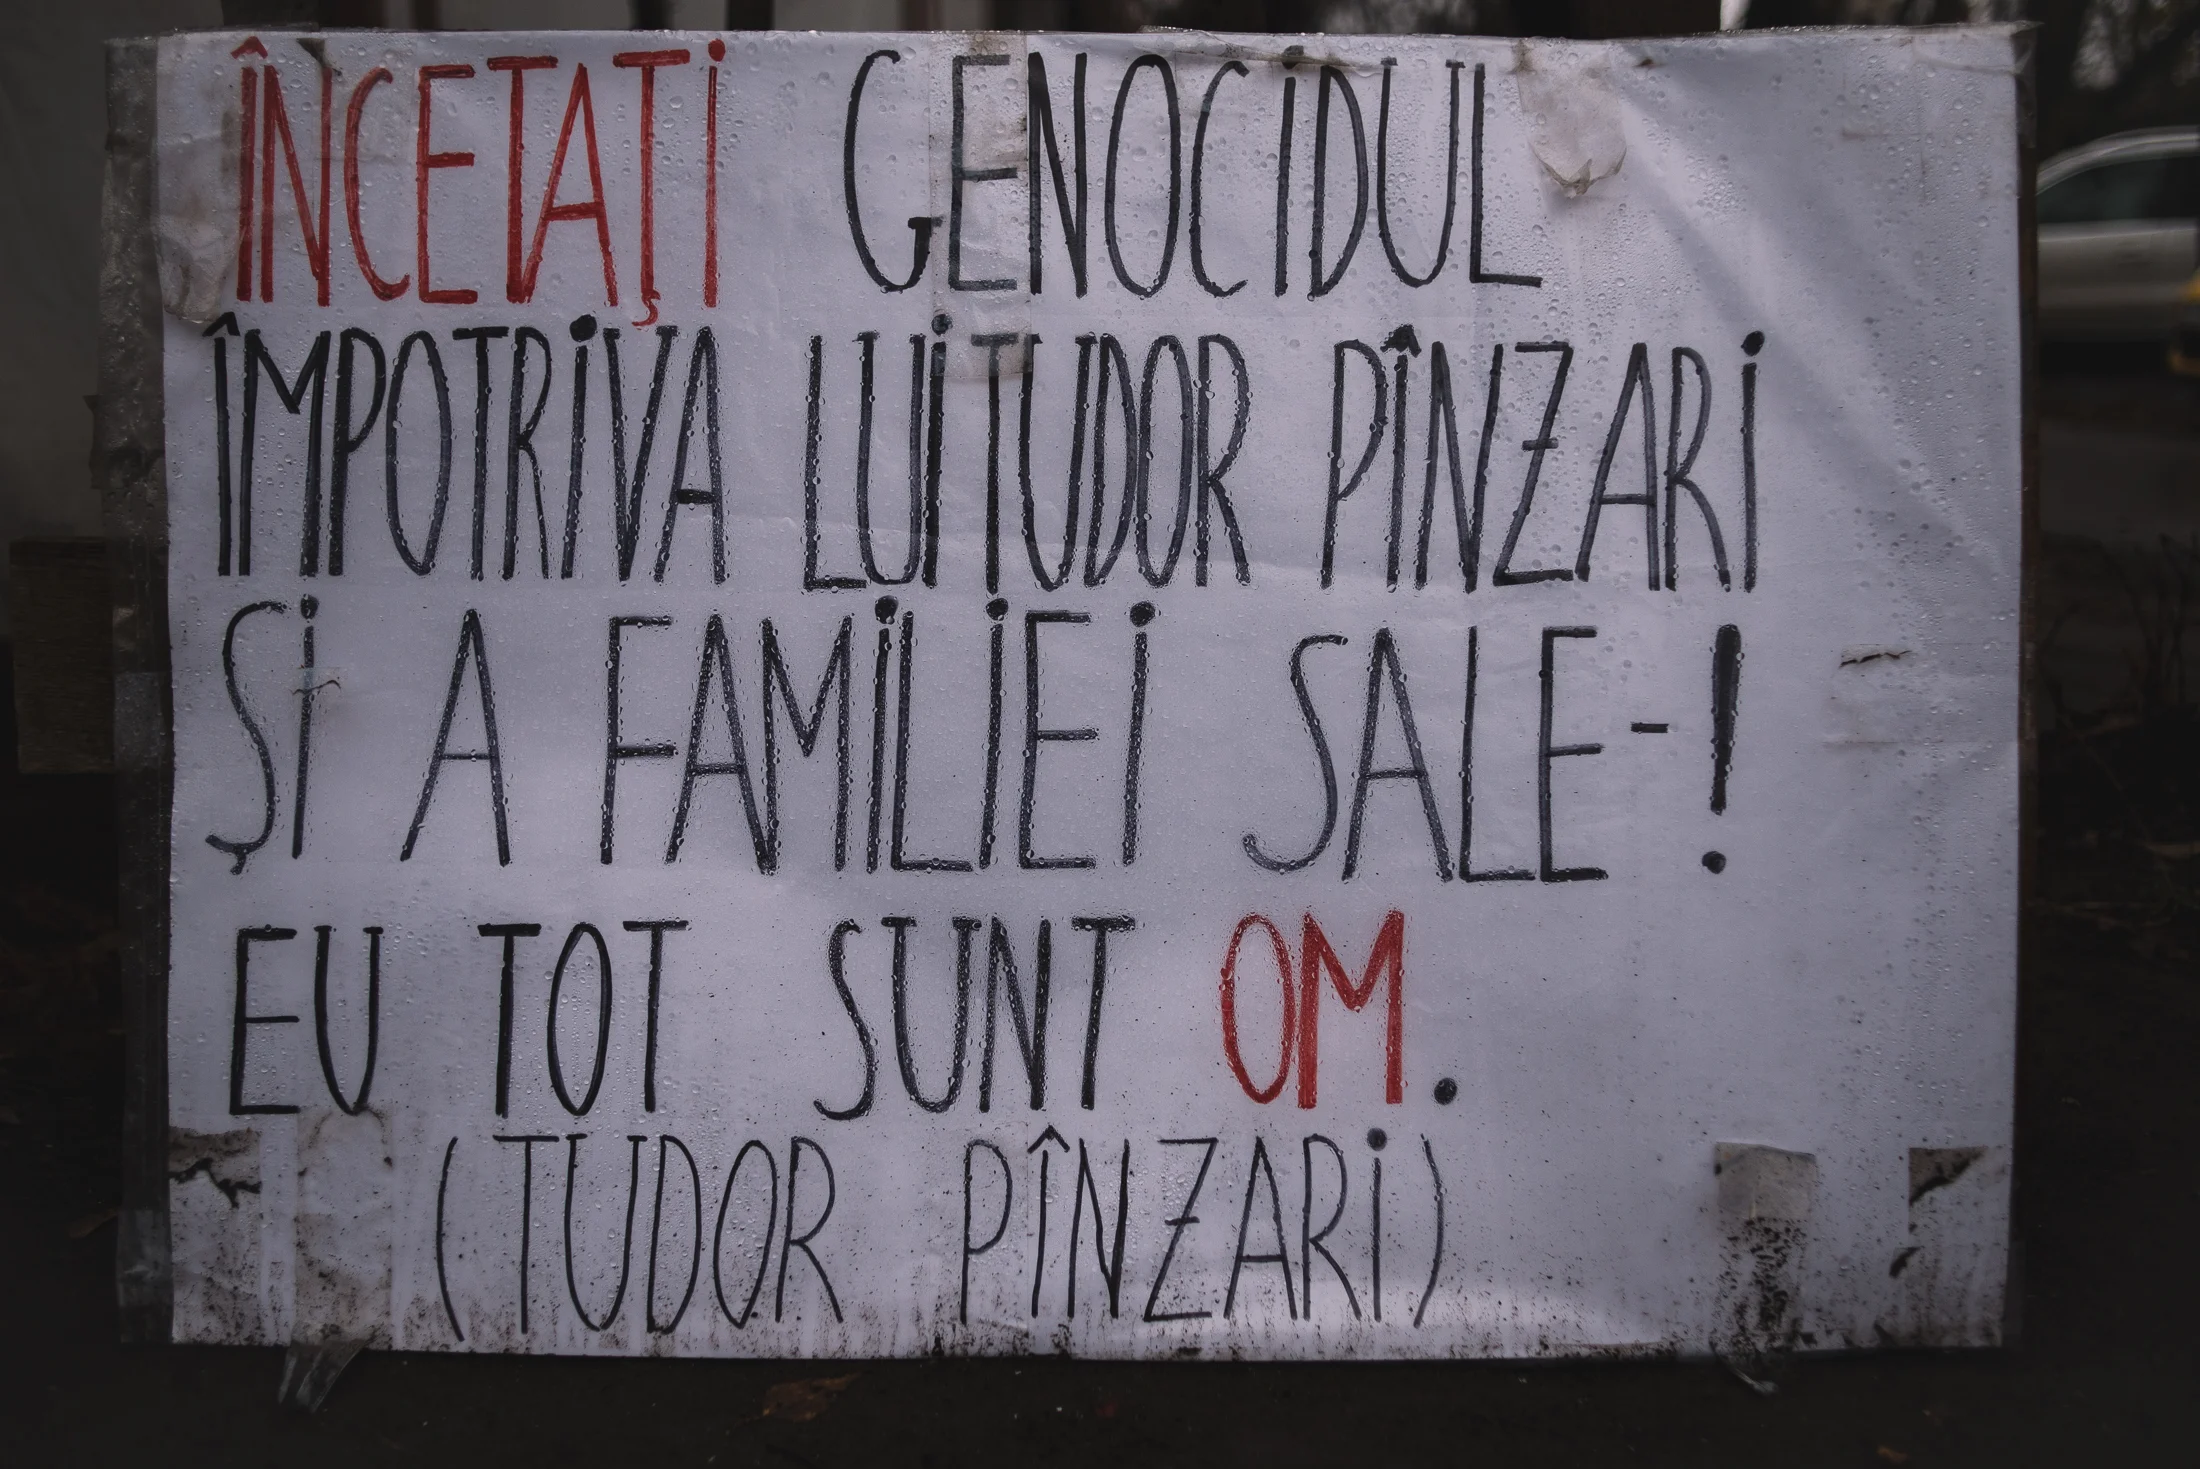 ÎNCETAȚI GENOCIDUL
ÎMPOTRIVA LUI TUDOR PÎNZARI
ȘI A FAMILIEI SALE-!
EU TOT SUNT OM.
(TUDOR PÎNZARI)